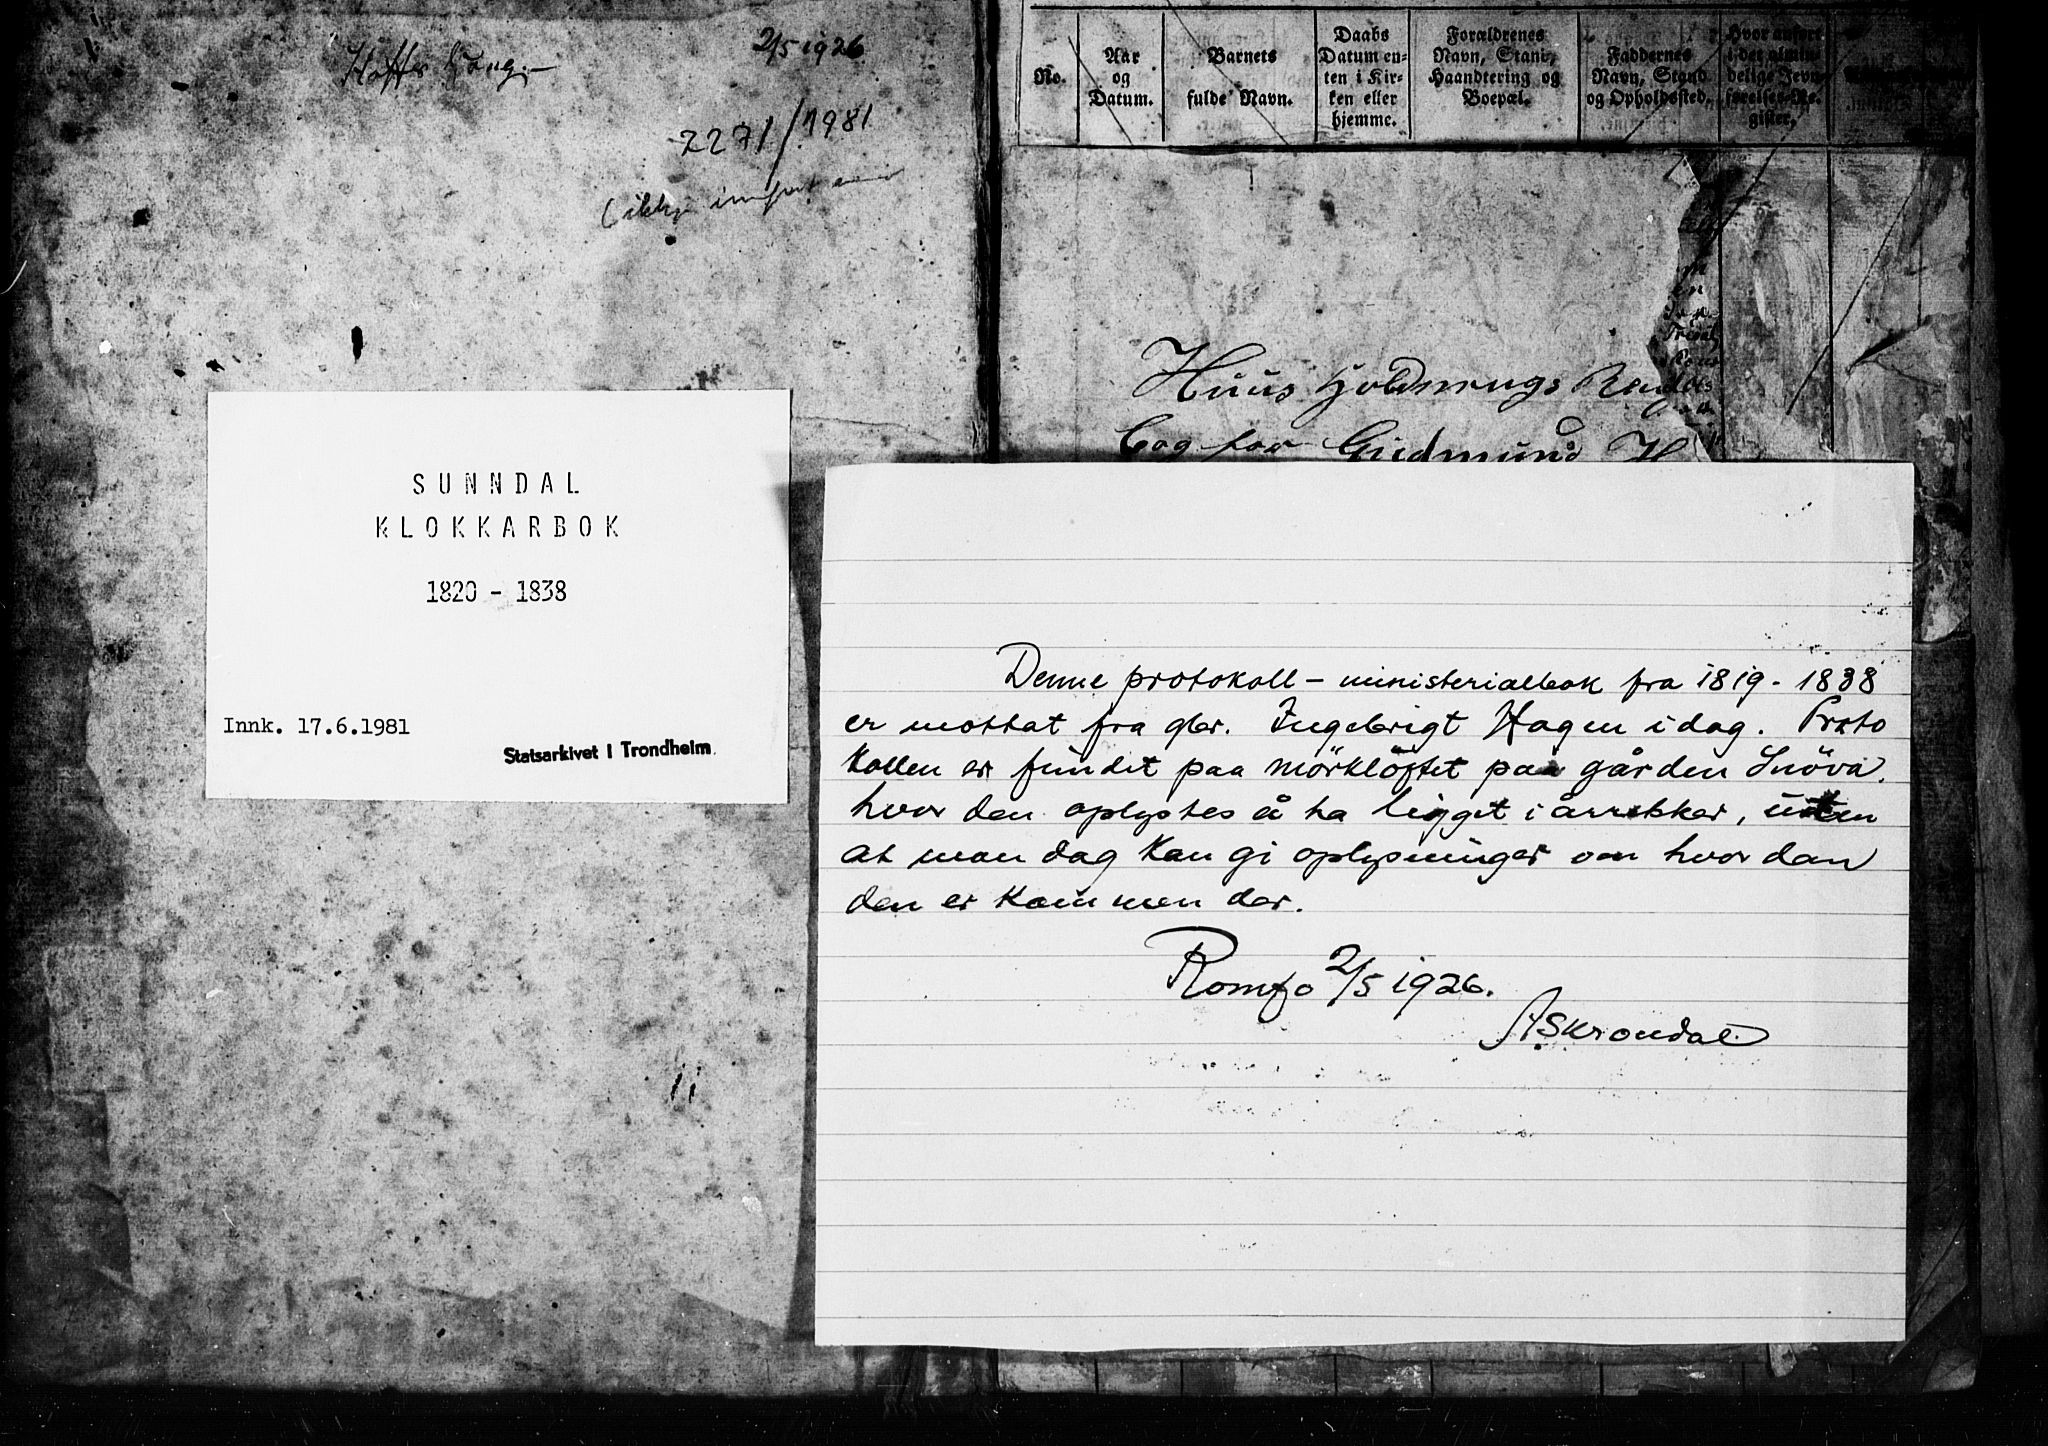 2/5 1926
2271/1981
(ikkje innført
SUNNDAL
KLOKKARBOK
1820 - 1838
Innk. 17.6.1981
Statsarkivet i Trondheim
No.
Aar
og
Datum.
Barnets
fulde Navn.
Daabs
Datum en-
ten i Kir-
ken eller
hjemme.
Forældrenes
Navn, Stand,
Haandtering og
Boepæl.
Faddernes
Navn, Stand
og Opholdssted.
Hvor anført
i det almin-
delige Jevn-
førelses-Re-
gister,
Huus Holdnings
Bog for Gudmund H
Denne protokoll - ministerialbok fra 1819 - 1838
er mottat fra gbr. Ingebrigt Hagen idag. Proto
kollen er fundet paa mörklöftet paa gården Snöva.
hvor den oplystes å ha ligget i årrekker, uten
at man dag kan gi oplysninger om hvordan
den er kommen der.
Romfo 2/5 1926.
A Skrondal